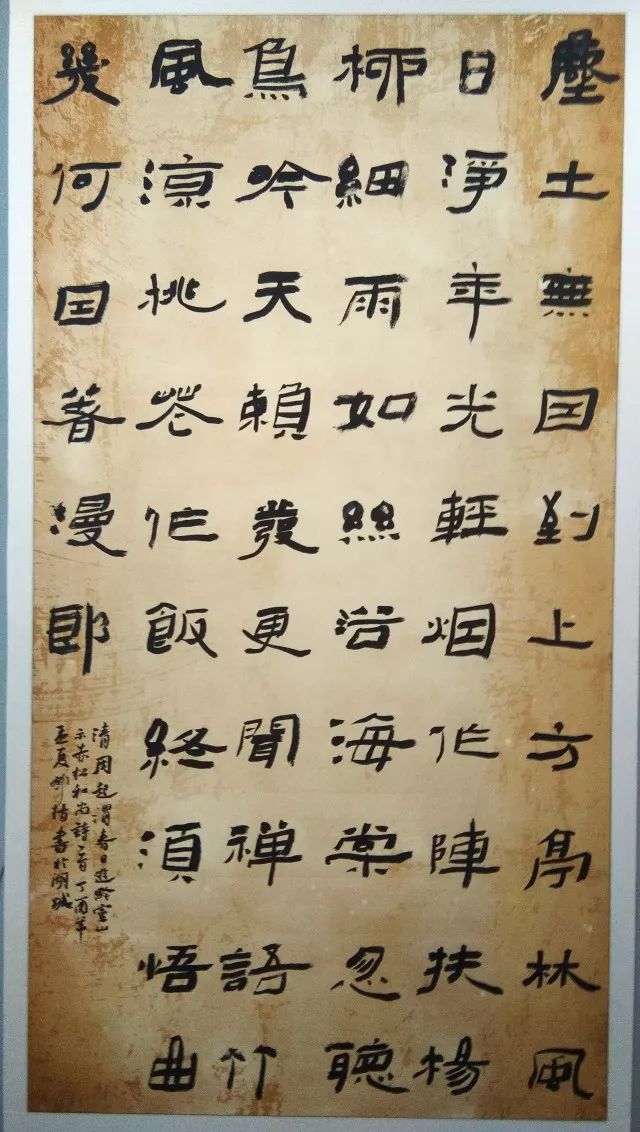 塵土無因到上方亭林風
日淨年光輕烟作陣扶楊
柳細雨如絲浴海棠忽聽
鳥吟天賴發更聞禅語竹
風涼桃花作飯終須悟曲
幾何因着漫郎
清周起渭春日遊黔靈山
示赤松和尚詩首丁酉年
孟夏書於湖城